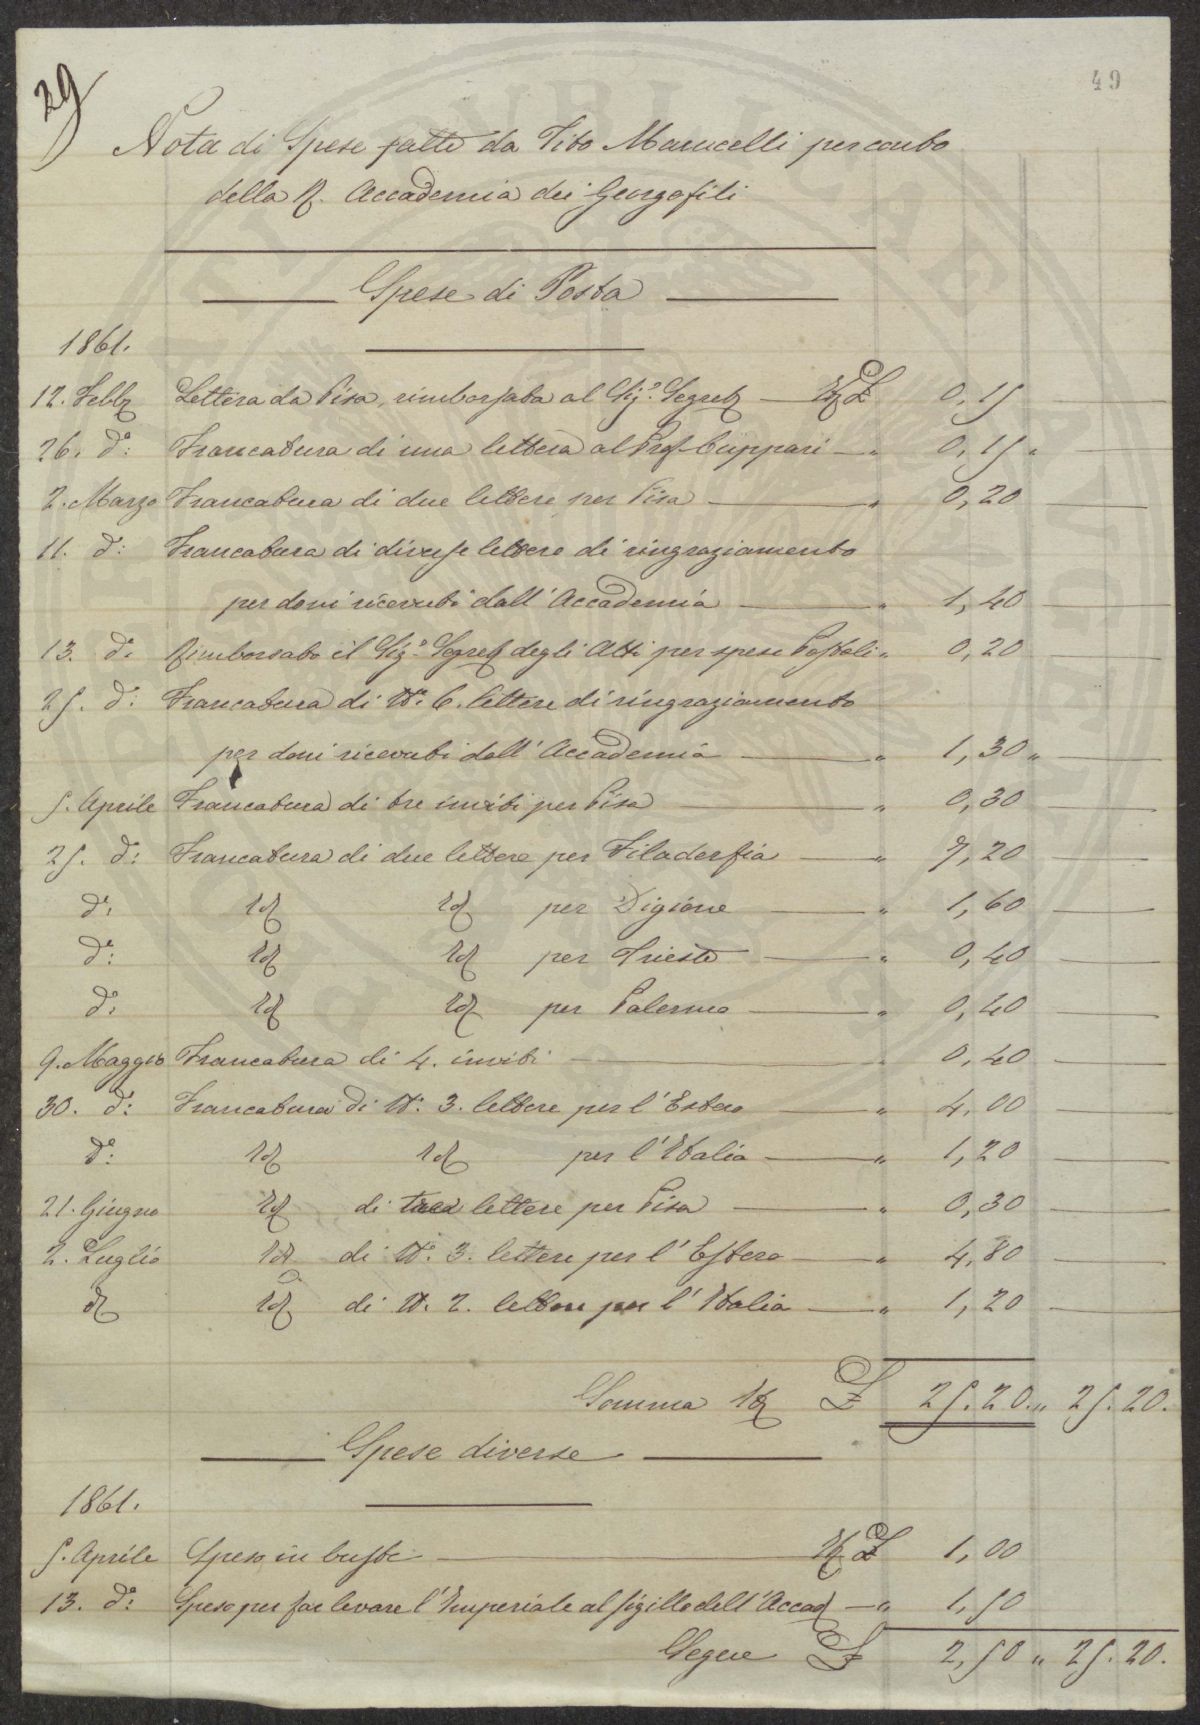 29
49
Nota di Spese fatte da Tito Marucelli per conto
della R. Accademia dei Georgofili
Spese di Posta
1861.
12. Febb Lettera da Pisa, rimborsata al Sig.e Segret £ 0,15
26. d.o: Francatura di una lettera al Prof. Cuppari " 0,15 "
2. Marzo Francatura di due lettere per Pisa " 0,20
11. d.o: Francatura di diverse lettere di ringraziamento
per doni ricevuti dall'Accademia " 1,40
13. d.o Rimborsato il Sig.e Segret degli Atti per spese Postali " 0,20
25. d.o: Francatura di N.o 6. lettere di ringraziamento
per doni ricevuti dall'Accademia " 1,30 "
5. Aprile Francatura di tre inviti per Pisa " 0,30
25. d.o: Francatura di due lettere per Filaderfia " 7,20
d.o: Id Id per Digione " 1,60
d.o: Id Id per Trieste " 0,40
d.o: Id Id per Palermo " 0,40
9. Maggio Francatura di 4. inviti " 0,40
30. d.o: Francatura di N.o 3. lettere per l'Estero " 4,00
d.o: Id Id per l'Italia " 1,20
21. Giugno Id di tre lettere per Pisa " 0,30
2. Luglio Id di N.o 3. lettere per l'Estero " 4,80
d Id di N. 2. lettere per l'Italia " 1,20
Somma £ 25.20. " 25.20.
Spese diverse
1861.
5. Aprile Speso in buste £ 1,00
13. d.o: Speso per far levare l'Imperiale al sigillo dell'Accad " 1,50
Segue £ 2,50 " 25.20.